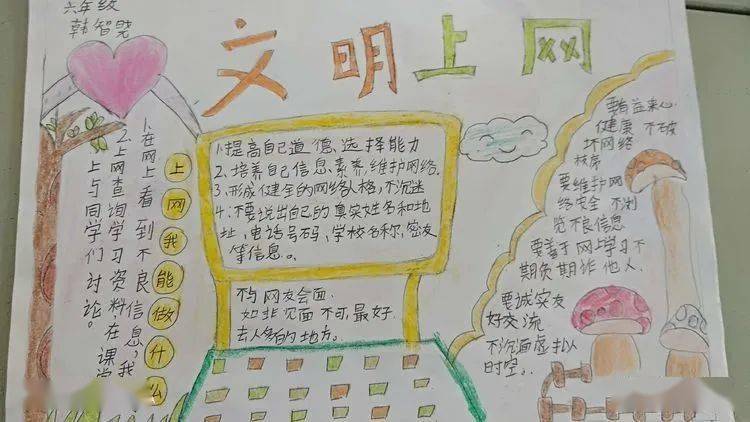 六年级
韩智晓
文明上网
1、在网上看到不良信息,我
2、上网查询学习资料,在课堂
上与同学们讨论。
上网我能做什么
1、提高自己道德选择能力
2、培养自己信息素养,维护网络。
3、形成健全的网络人格,不沉迷
4:不要说出自己的真实姓名和地
址,电话号码、学校名称,密友
等信息。。
不与网友会面
如非见面不可,最好
去人多的地方。
要有益来心
健康 不破
坏网络
秩序
要维护网
络安全 不浏
览不良信息
要善于网上学习不
期负期诈他人.
要诚实友
好交流
不沉面虚拟
时空。.